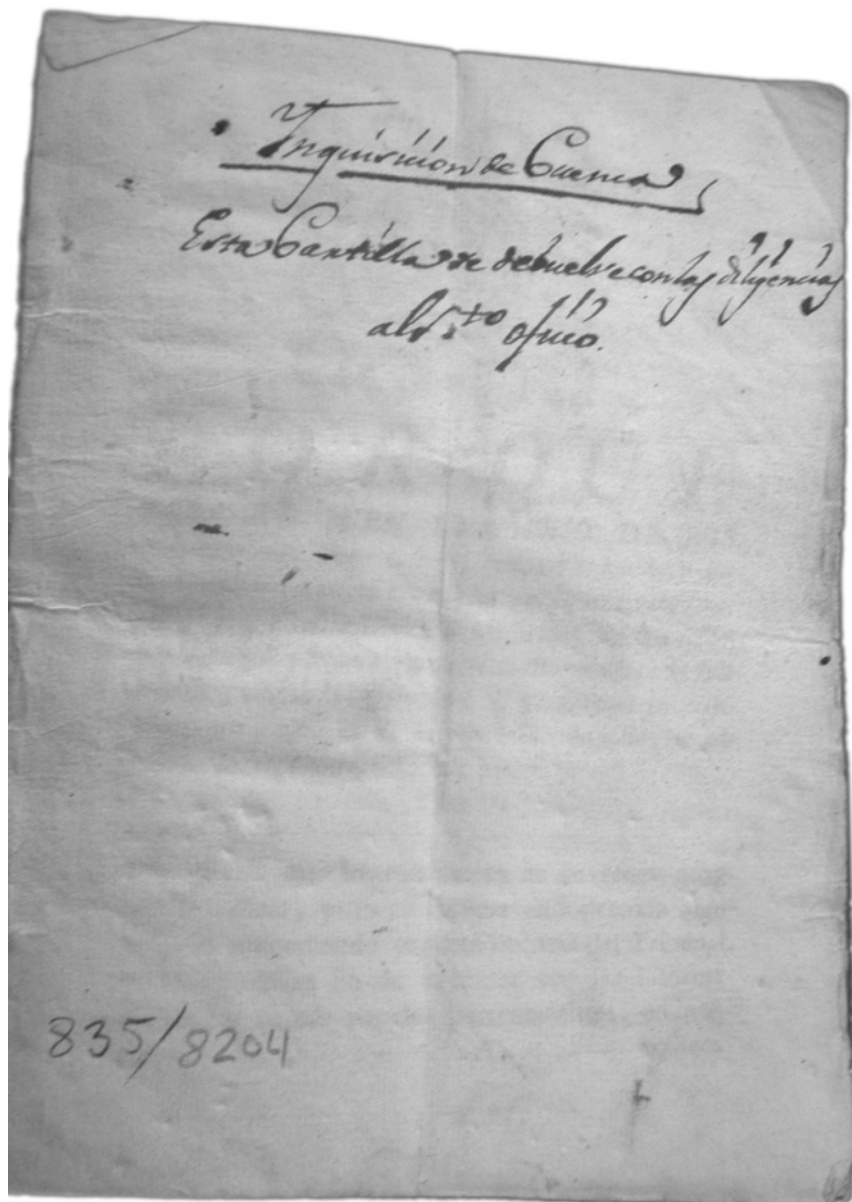 Inquisicion de Cuenca
Esta Cartilla se debuelve con las diligencias
al S.to oficio.
835/8204